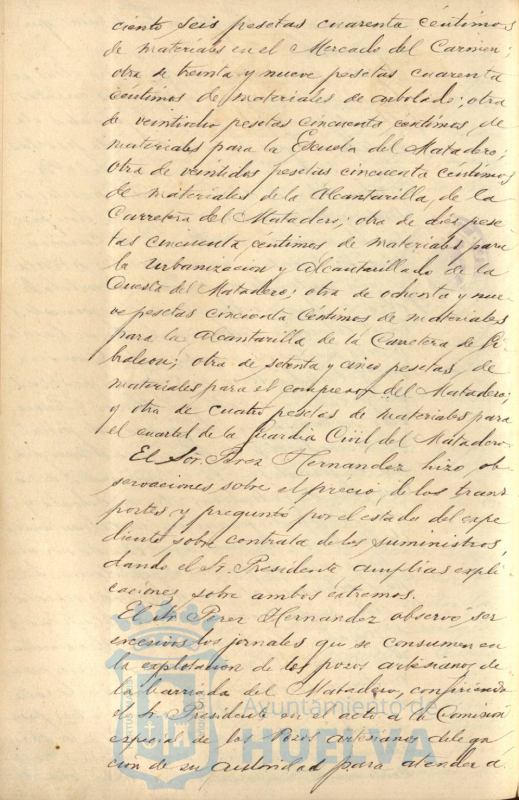 ciento seis pesetas cuarenta céntimos
de materiales en el Mercado del Carmen;
otra de treinta y nueve pesetas cuarenta
céntimos de materiales de arbolado; otra
de veintiocho pesetas cincuenta céntimos, de
materiales para la Escuela del Matadero;
otra de veintidos pesetas cincuenta céntimos
de materiales de la Alcantarilla de la
Carretera del Matadero; otra de dies pese
tas cincuenta céntimos de materiales para
la urbanizacion y Alcantarillado de la
Cuesta del Matadero; otra de ochenta y nue
ve pesetas cincuenta céntimos de materiales
para la Alcantarilla de la Carretera de Gi
braleon; otra de setenta y cinco pesetas de
materiales para el compresor del Matadero;
y otra de cuatro pesetas de materiales para
el cuartel de la Guardia Civil del Matadero.
El Sor. Perez Hernandez hizo, ob
servaciones sobre el précio de los trans
portes y preguntó por el estado del espe
diente sobre contrata de los suministros,
dando el Sr. Presidente amplias expli
caciones sobre ambos extremos.
El Sr. Perez Hernandez observó ser
excesivos los jornales que se consumen en
la explotacion de los pozos artesianos de
la barriada del Matadero, confiriendo
el Sr. Presidente en el acto a la Comision
especial de los Pozos artesianos delega
cion de su autoridad para atender á
Ayuntamiento de
HUELVA